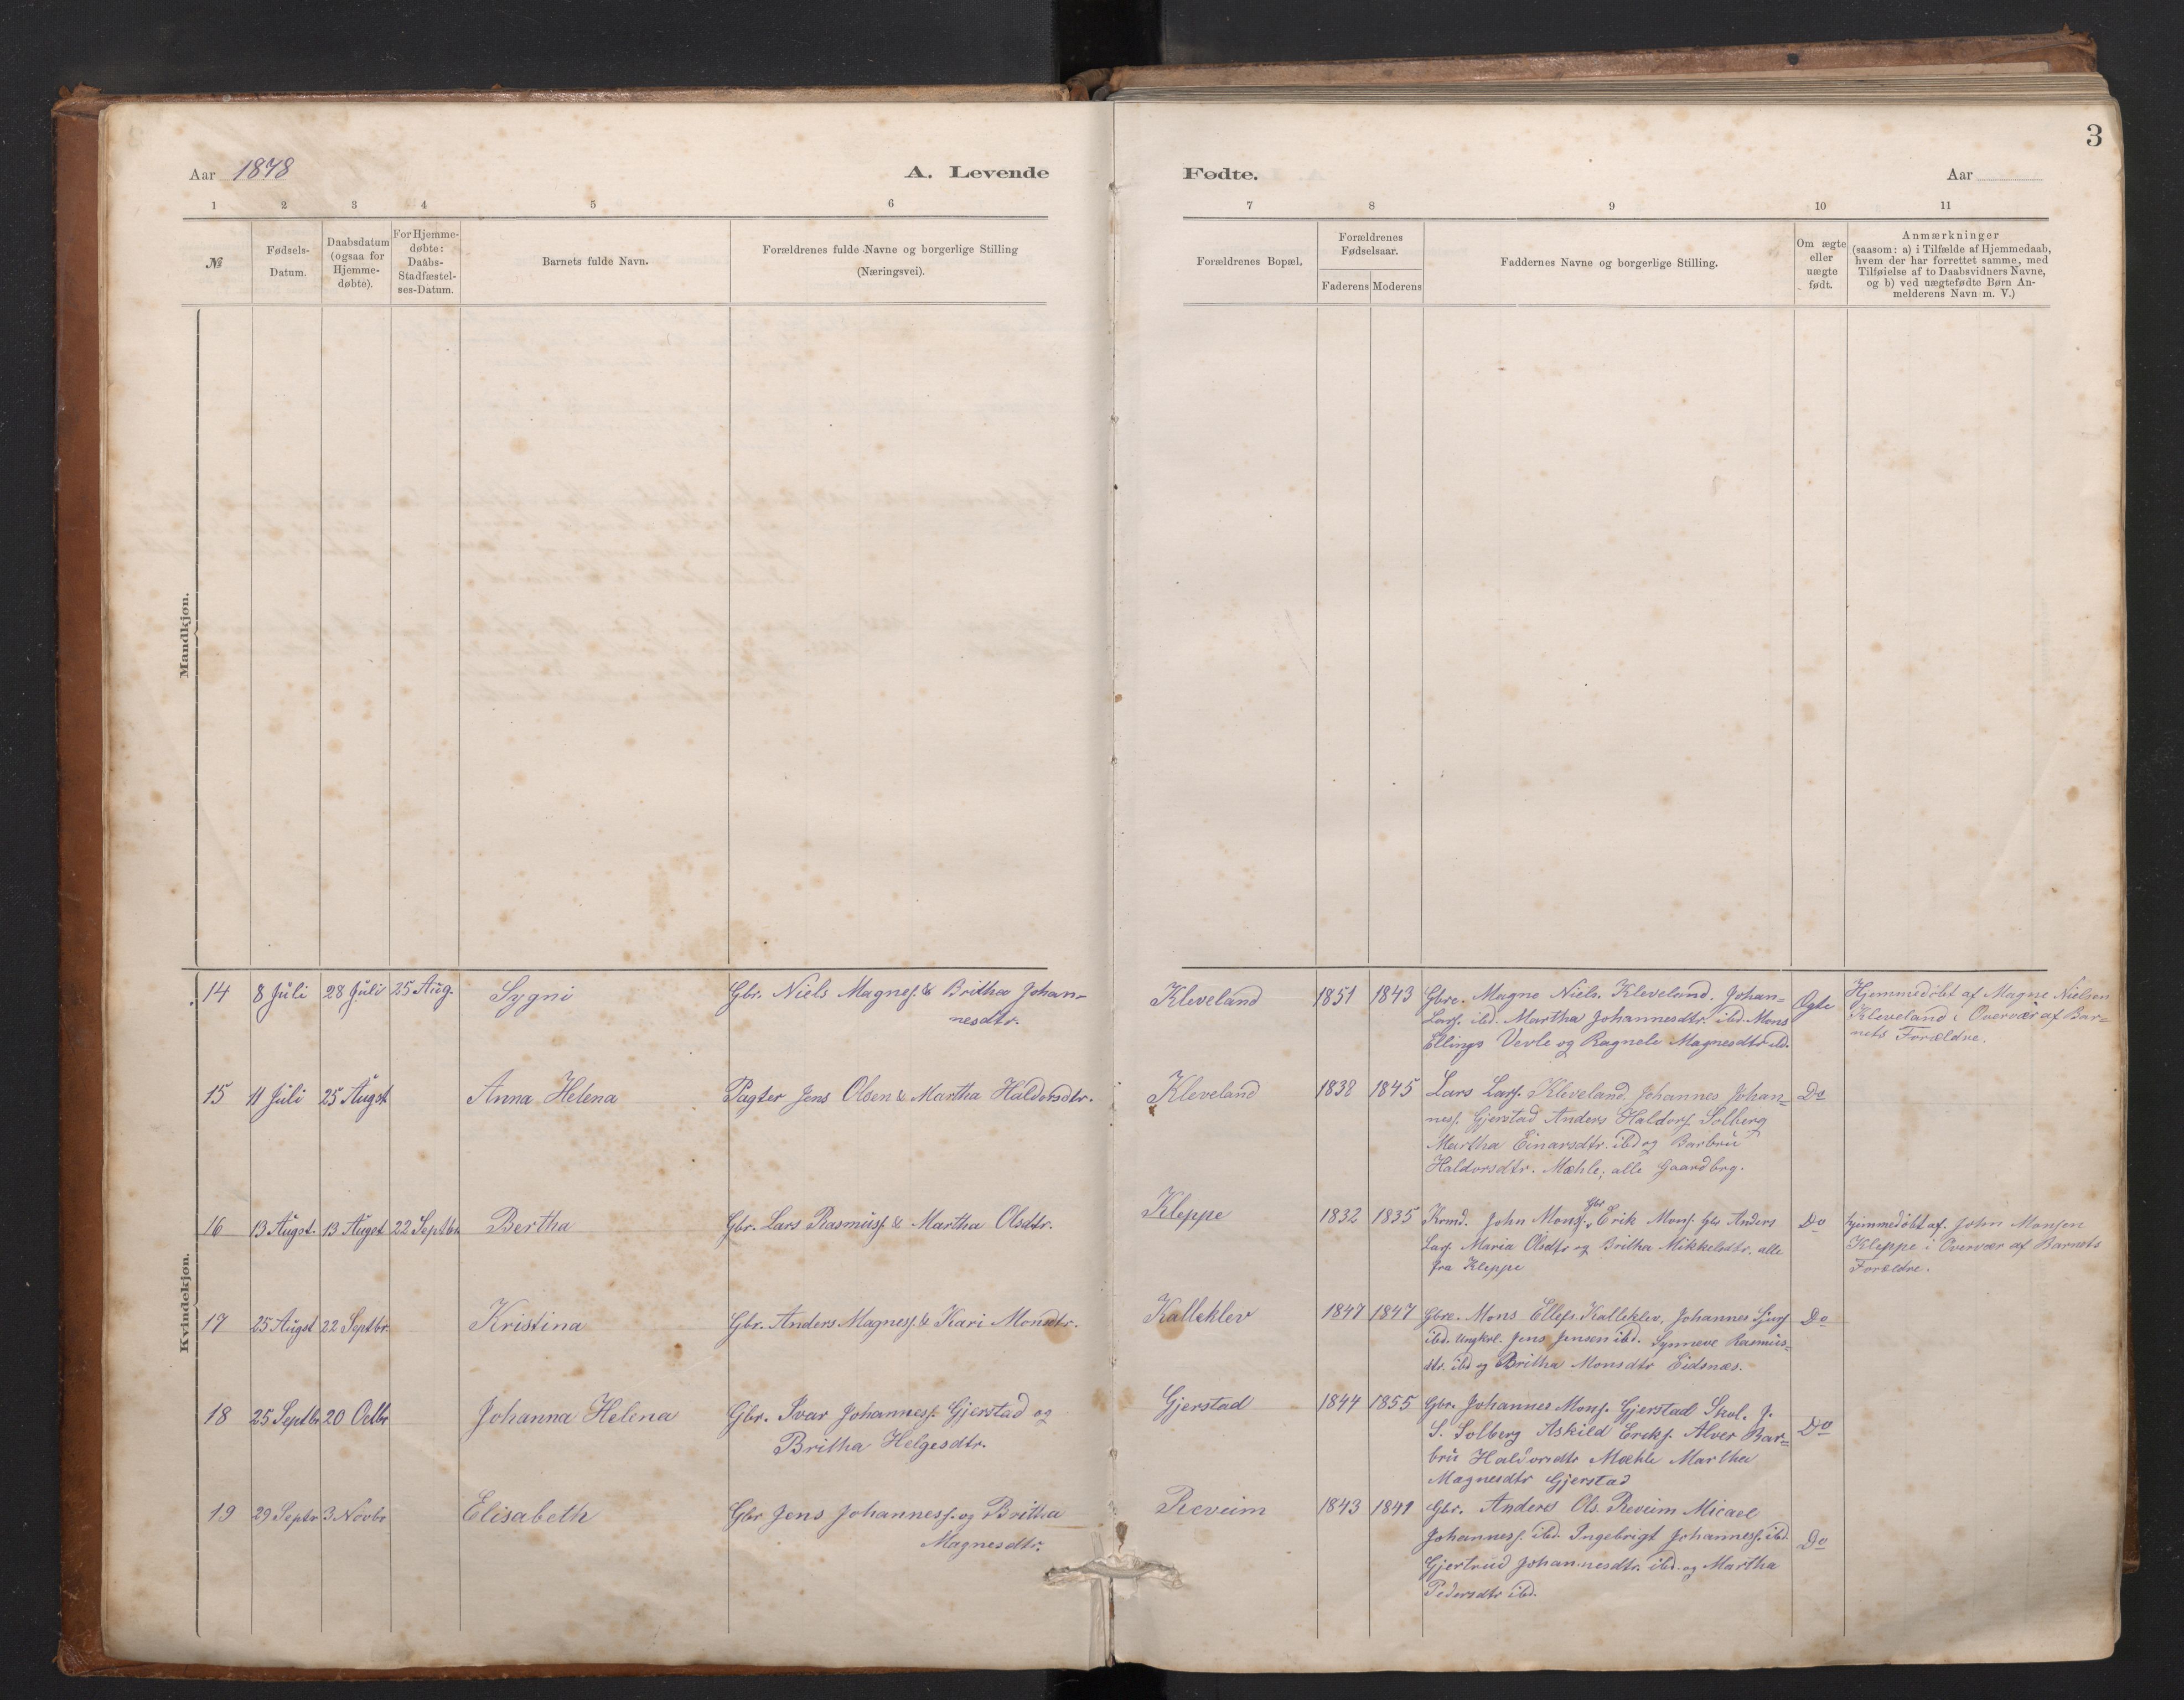 3
Aar 1878
A. Levende
Fødte.
Aar
1 2 3 4 5 6
7 8 9 10 11
№
Fødsels-
Datum.
Daabsdatum
(ogsaa for
Hjemme-
døbte).
For Hjemme-
døbte:
Daabs-
Stadfæstel-
ses-Datum.
Barnets fulde Navn.
Forældrenes fulde Navne og borgerlige Stilling
(Næringsvei).
Forældrenes Bopæl.
Forældrenes
Fødselsaar.
Faderens Moderens
Faddernes Navne og borgerlige Stilling.
Om ægte
eller
uægte
født.
Anmærkninger
(saasom: a) i Tilfælde af Hjemmedaab,
hvem der har forrettet samme, med
Tilføielse af to Daabsvidners Navne,
og b) ved uægtefødte Børn An-
melderens Navn m. V.)
Mandkjøn.
Kvindekjøn.
14 8 Juli 28 Juli 25 Aug. Sygni
Gbr. Niels Magnes. & Britha Johan-
nesdtr.
Kleveland 1851 1843
Gbre. Magne Niels. Kleveland. Johan=
Lars. ibd. Martha Johannesdtr. ibd. Mons
Ellings Vevle og Ragnele Magnesdtr ibd.
Ægte
Hjemmedøbt af Magne Nielsen
Kleveland i Overvær af Bar=
nets Forældre.
15 11 Juli 25 Augst Anna Helena
Pagter Jens Olsen & Martha Haldorsdtr.
Kleveland 1838 1845
Lars Lars. Kleveland Johannes Johan=
nes. Gjerstad Anders Haldors. Solberg
Martha Einarsdtr. ibd og Barbru
Haldorsdtr. Mæhle, alle Gaardbrg.
Do
16 13 Augst. 13 Augst 22 Septbr Bertha
Gbr. Lars Rasmus. & Martha Olsdtr.
Kleppe 1832 1835
Krmd. John Mons. Gbr Erik Mons. Gbr Anders
Lars. Maria Olsdtr og Britha Mikkelsdtr. alle
fra Kleppe
Do
Hjemmedøbt af. John Monsen
Kleppe i Overvær af Barnets
Forældre.
17 25 Augst 22 Septbr. Kristina
Gbr. Anders Magnes. & Kari Monsdtr.
Kalleklev 1847 1847
Gbre. Mons Ellefs. Kalleklev, Johannes Sjurs
ibd. Ungkrl. Jens Jensen ibd. Synneve Rasmus=
dtr. ibd og Britha Monsdtr Eidsnæs.
Do
18 25 Septbr 20 Octbr Johanna Helena
Gbr. Ivar Johannes. Gjerstad og
Britha Helgesdtr.
Gjerstad 1844 1855
Gbr. Johannes Mons. Gjerstad Skol. J.
S. Solberg Askild Eriks. Alver Bar=
bru Haldorsdtr Mæhle Martha
Magnesdtr Gjerstad
Do
19 29 Septr 3 Novbr Elisabeth
Gbr Jens Johannes. og Britha
Magnesdtr.
Reveim 1843 1841
Gbr. Anders Ols. Reveim Micael
Johannes. ibd. Ingebrigt Johannes. ibd.
Gjertrud Johannesdtr. ibd. og Martha
Pedersdtr ibd.
Do